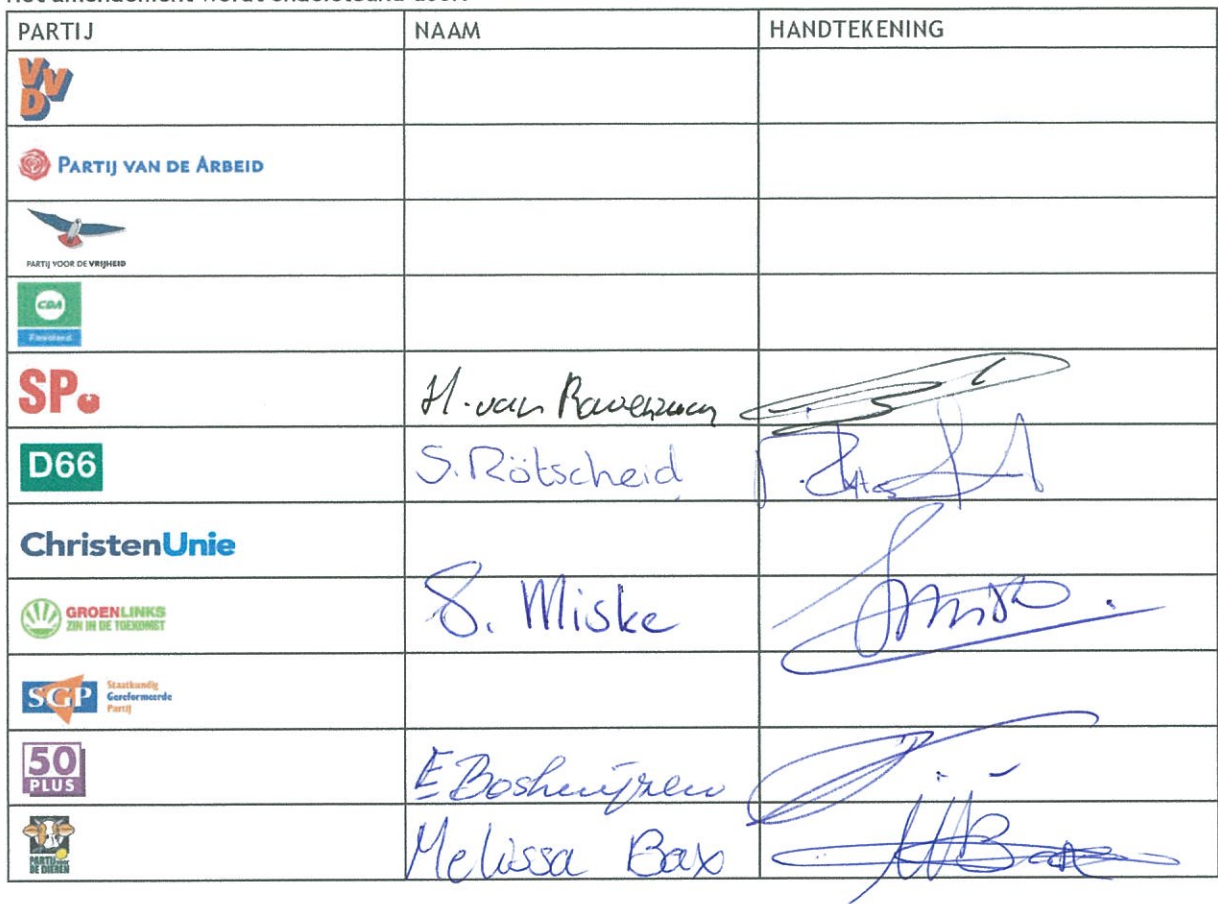 PARTIJ NAAM HANDTEKENING
VVD
PARTIJ VAN DE ARBEID
PARTIJ VOOR DE VRIJHEID
CDA
Flevoland
SP. H. van Ravenzwaay
D66 S. Rötscheid
ChristenUnie
GROENLINKS S. Miske
ZIN IN DE TOEKOMST
SGP Staatkundig
Gereformeerde
Partij
50 E Boshuijzen
PLUS
PARTIJ voor Melissa Bax
DE DIEREN